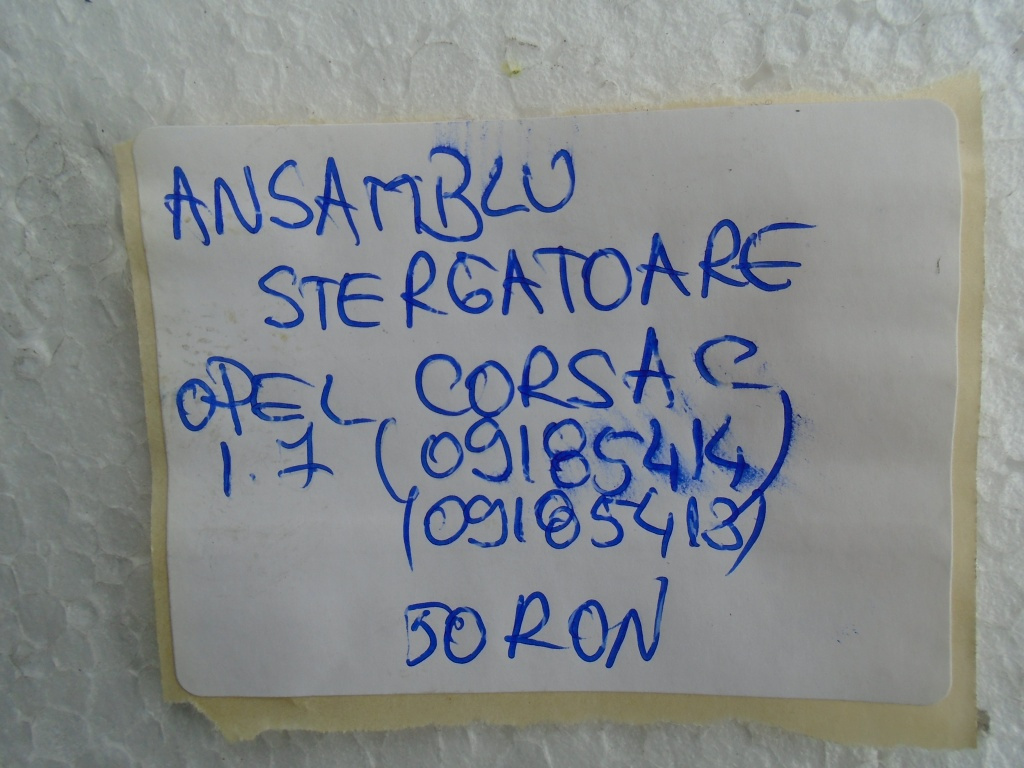 ANSAMBLU
STERGATOARE
OPEL CORSA C
1.7 (09185414)
(09185413)
50 RON